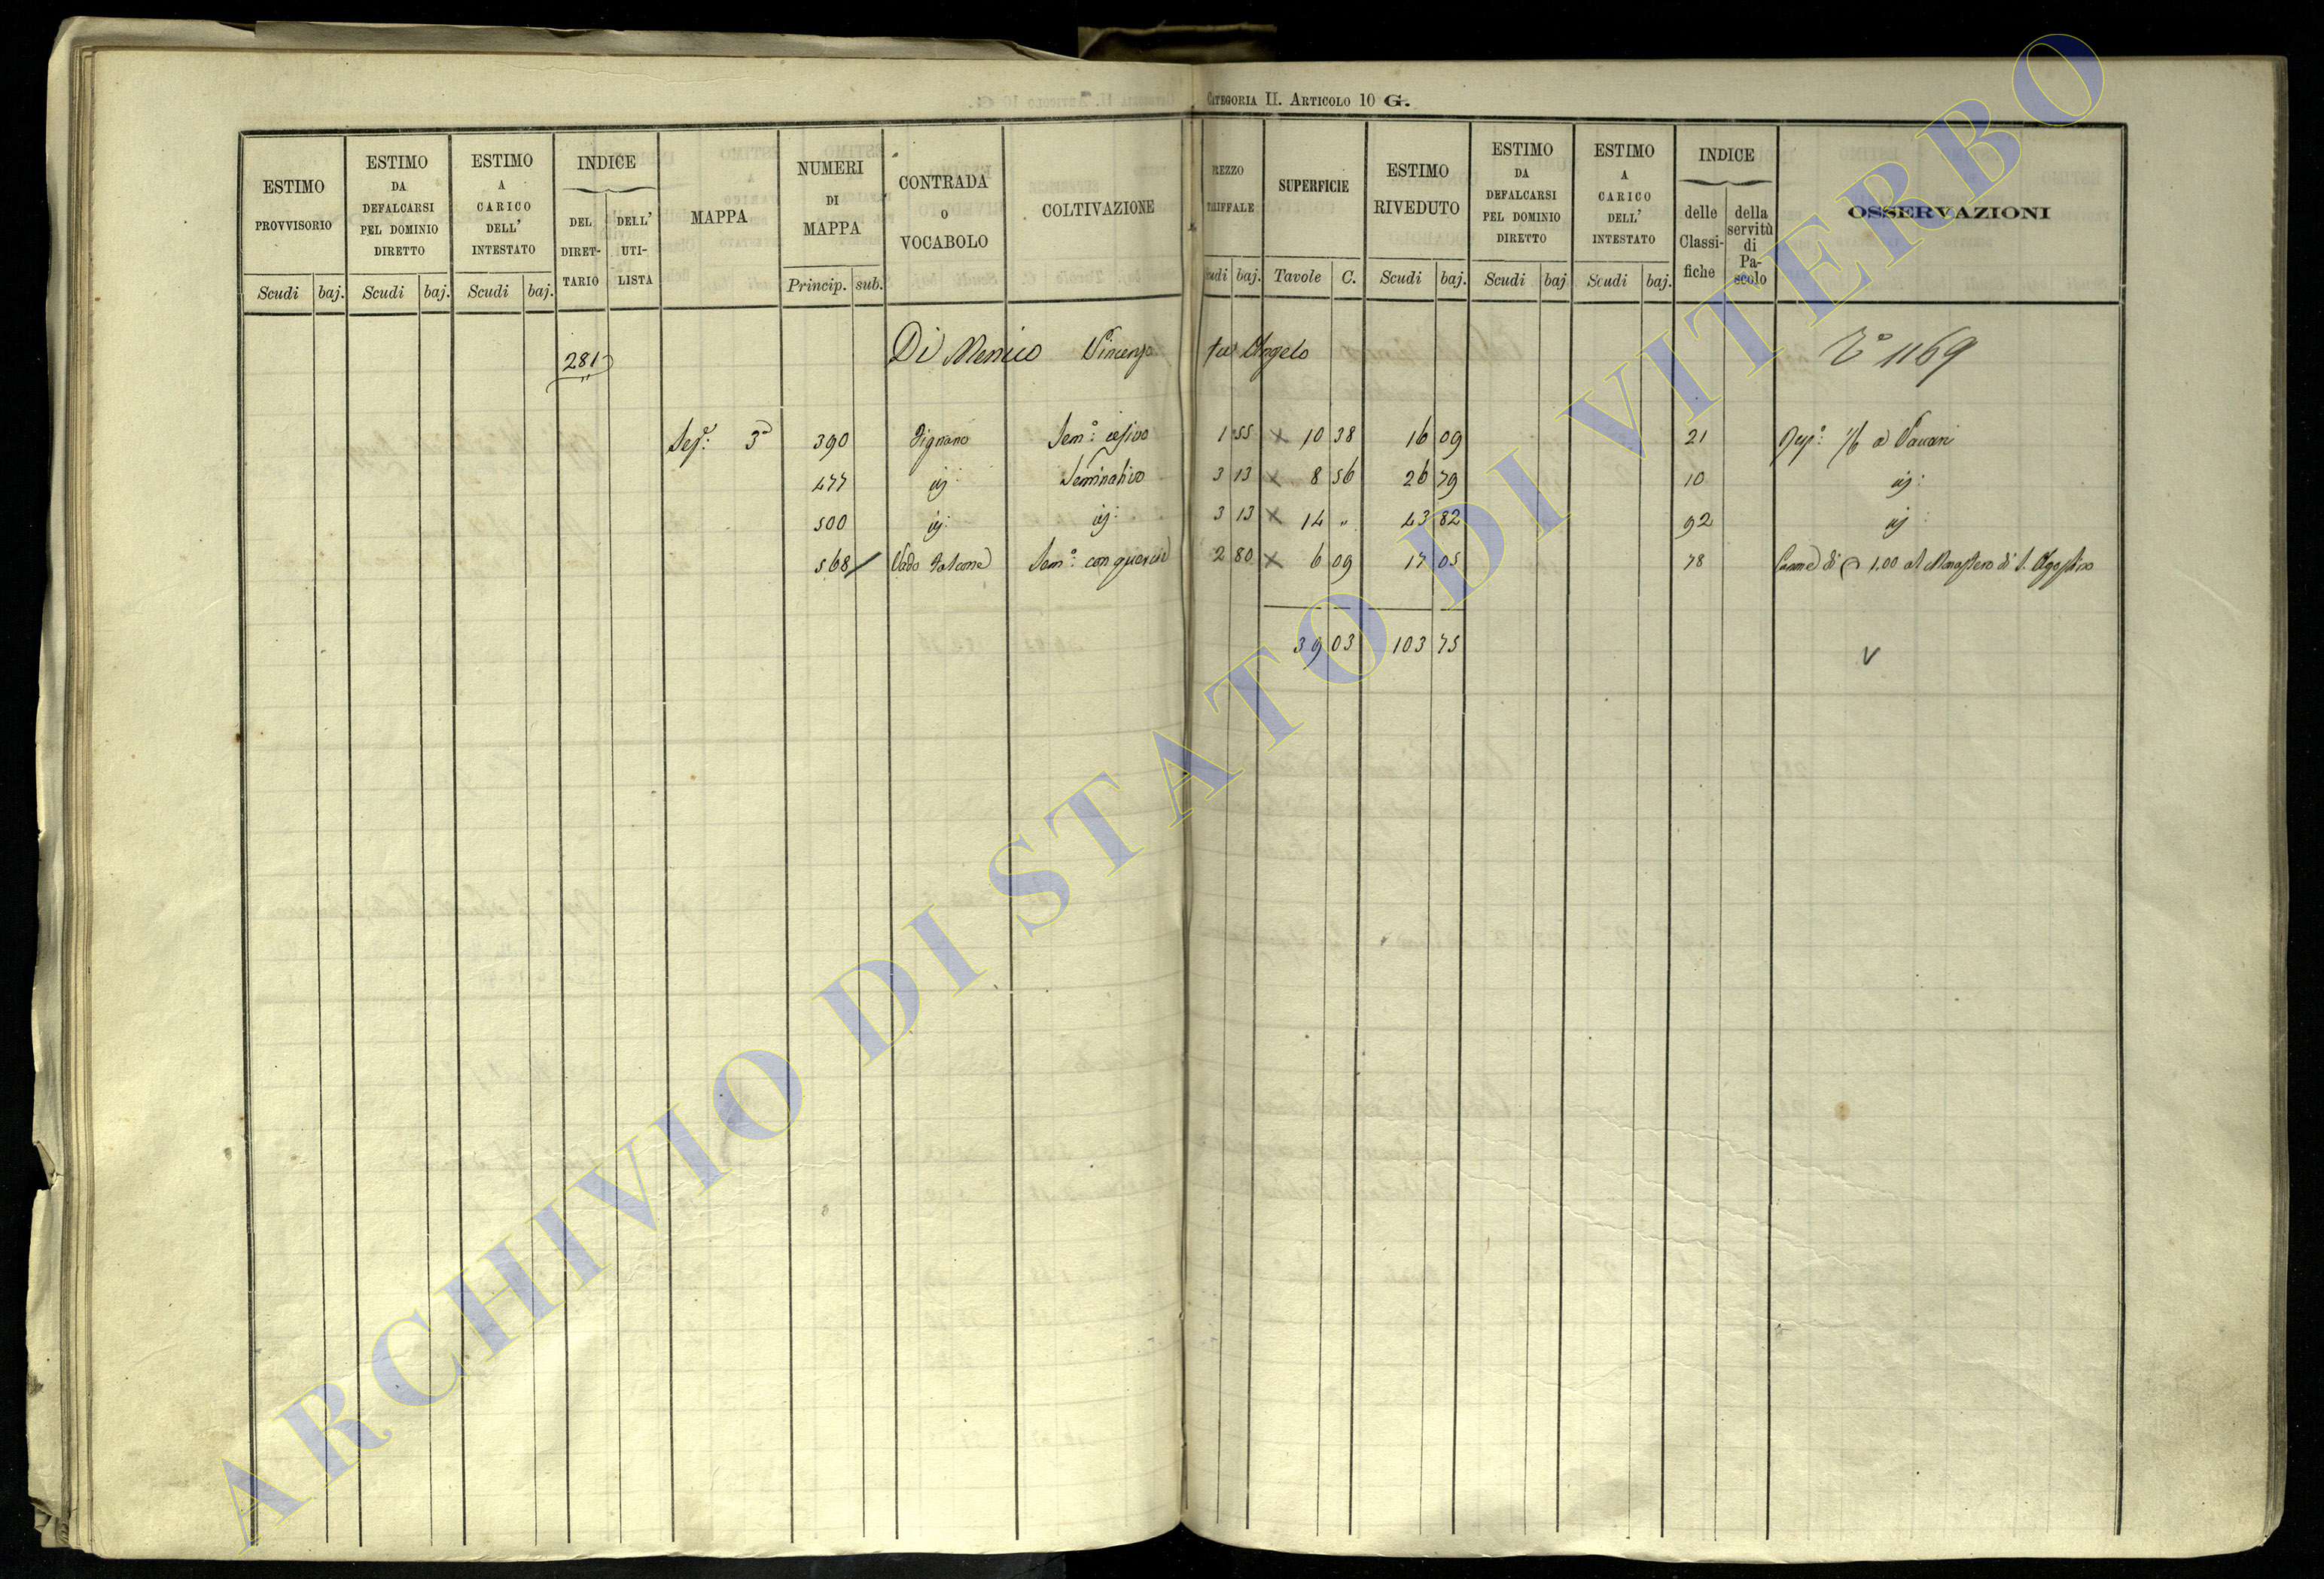 CATEGORIA II. ARTICOLO 10 G.
ESTIMO PROVVISORIO Scudi baj.
ESTIMO DA DEFALCARSI PEL DOMINIO DIRETTO Scudi baj.
ESTIMO A CARICO DELL' INTESTATO Scudi baj.
INDICE DEL DIRET- TARIO DELL' UTI- LISTA
MAPPA
NUMERI DI MAPPA Princip. sub.
CONTRADA O VOCABOLO
COLTIVAZIONE
REZZO TARIFFALE udi baj.
SUPERFICIE Tavole C.
ESTIMO RIVEDUTO Scudi baj.
ESTIMO DA DEFALCARSI PEL DOMINIO DIRETTO Scudi baj
ESTIMO A CARICO DELL' INTESTATO Scudi baj.
INDICE delle Classi- fiche della servitù di Pa- scolo
OSSERVAZIONI
281 Di Menico Vincenzo fu Angelo 1169
3ª 390 Pignano Semº: 1 55 x 10 38 16 09 21
477 Seminativo 3 13 x 8 56 26 79 10
500 3 13 x 14 " 43 82 92
568 Vado Falcone Semº: con querci 2 80 x 6 09 17 05 78 Canone di 1,00 al Monastero di S. Agostino
39 03 103 75
ARCHIVIO DI STATO DI VITERBO